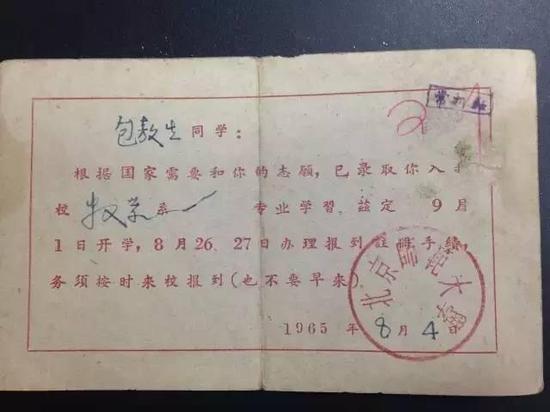 包敖生同学：
根据国家需要和你的志愿，已录取你入我
校 数学系 专业学习。兹定 9月
1日开学，8月26、27日办理报到註册手续，
务须按时来校报到（也不要早来）
1965 年 8 月 4 日
北京师范大学